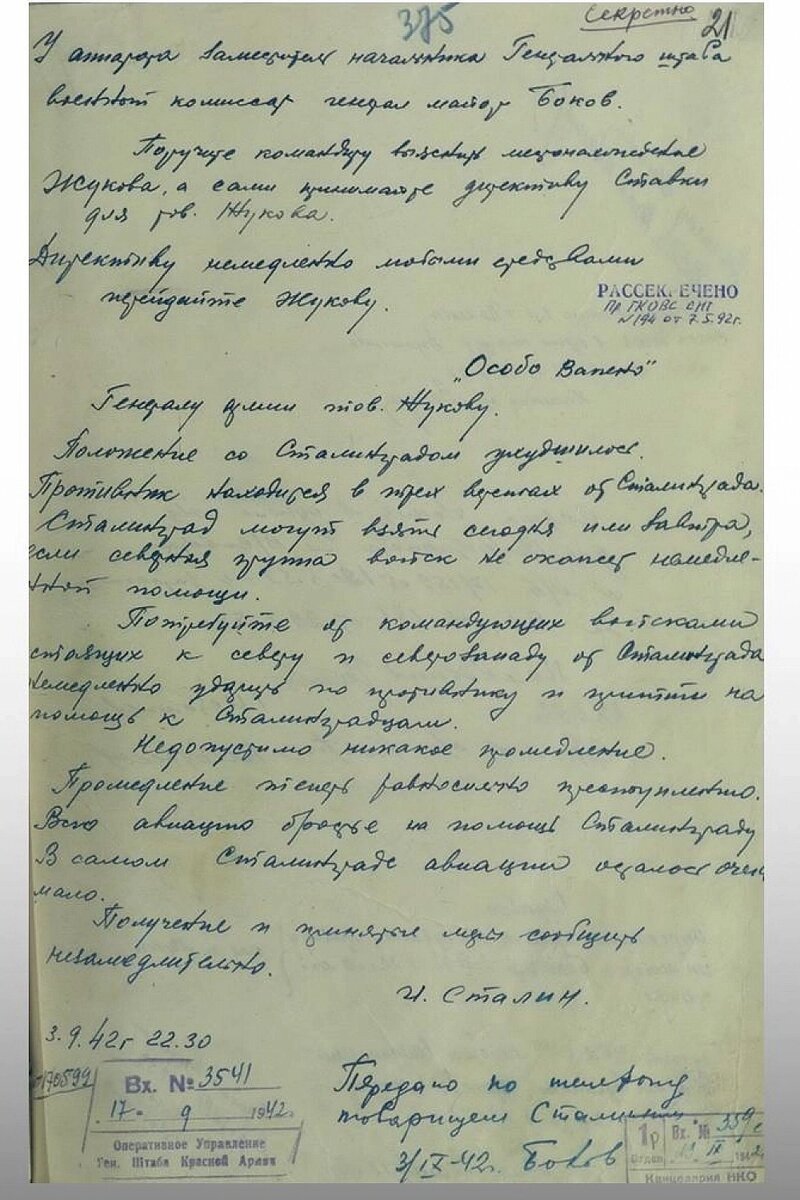 375
Секретно
21
У аппарата заместитель начальника Генерального штаба
военный комиссар генерал майор Боков.
Поручите командиру выяснить местонахождение
Жукова, а сами принимайте директиву Ставки
для тов. Жукова.
Директиву немедленно любыми средствами
передайте Жукову.
РАССЕКРЕЧЕНО
Пр ГКОВС СНГ
№194 от 7.5.92г.
„Особо Важно"
Генералу армии тов. Жукову.
Положение со Сталинградом ухудшилось.
Противник находится в трех верстах от Сталинграда.
Сталинград могут взять сегодня или завтра,
если северная группа войск не окажет немедле-
нной помощи.
Потребуйте от командующих войсками
стоящих к северу и северозападу от Сталинграда
немедленно ударить по противнику и притти на
помощь к Сталинградцам.
Недопустимо никакое промедление.
Промедление теперь равносильно преступлению.
Всю авиацию бросьте на помощь Сталинграду
В самом Сталинграде авиации осталось очень
мало.
Получение и принятые меры сообщить
незамедлительно.
И. Сталин.
3.9.42г 22.30
170599
Вх. № 3541
17- 9 1942г.
Оперативное Управление
Ген. Штаба Красной Армии
Передано по телефону
товарищем Сталиным
3/IX-42г. Боков
1р Вх. №
Отдел IX 194
Канцелярия НКО